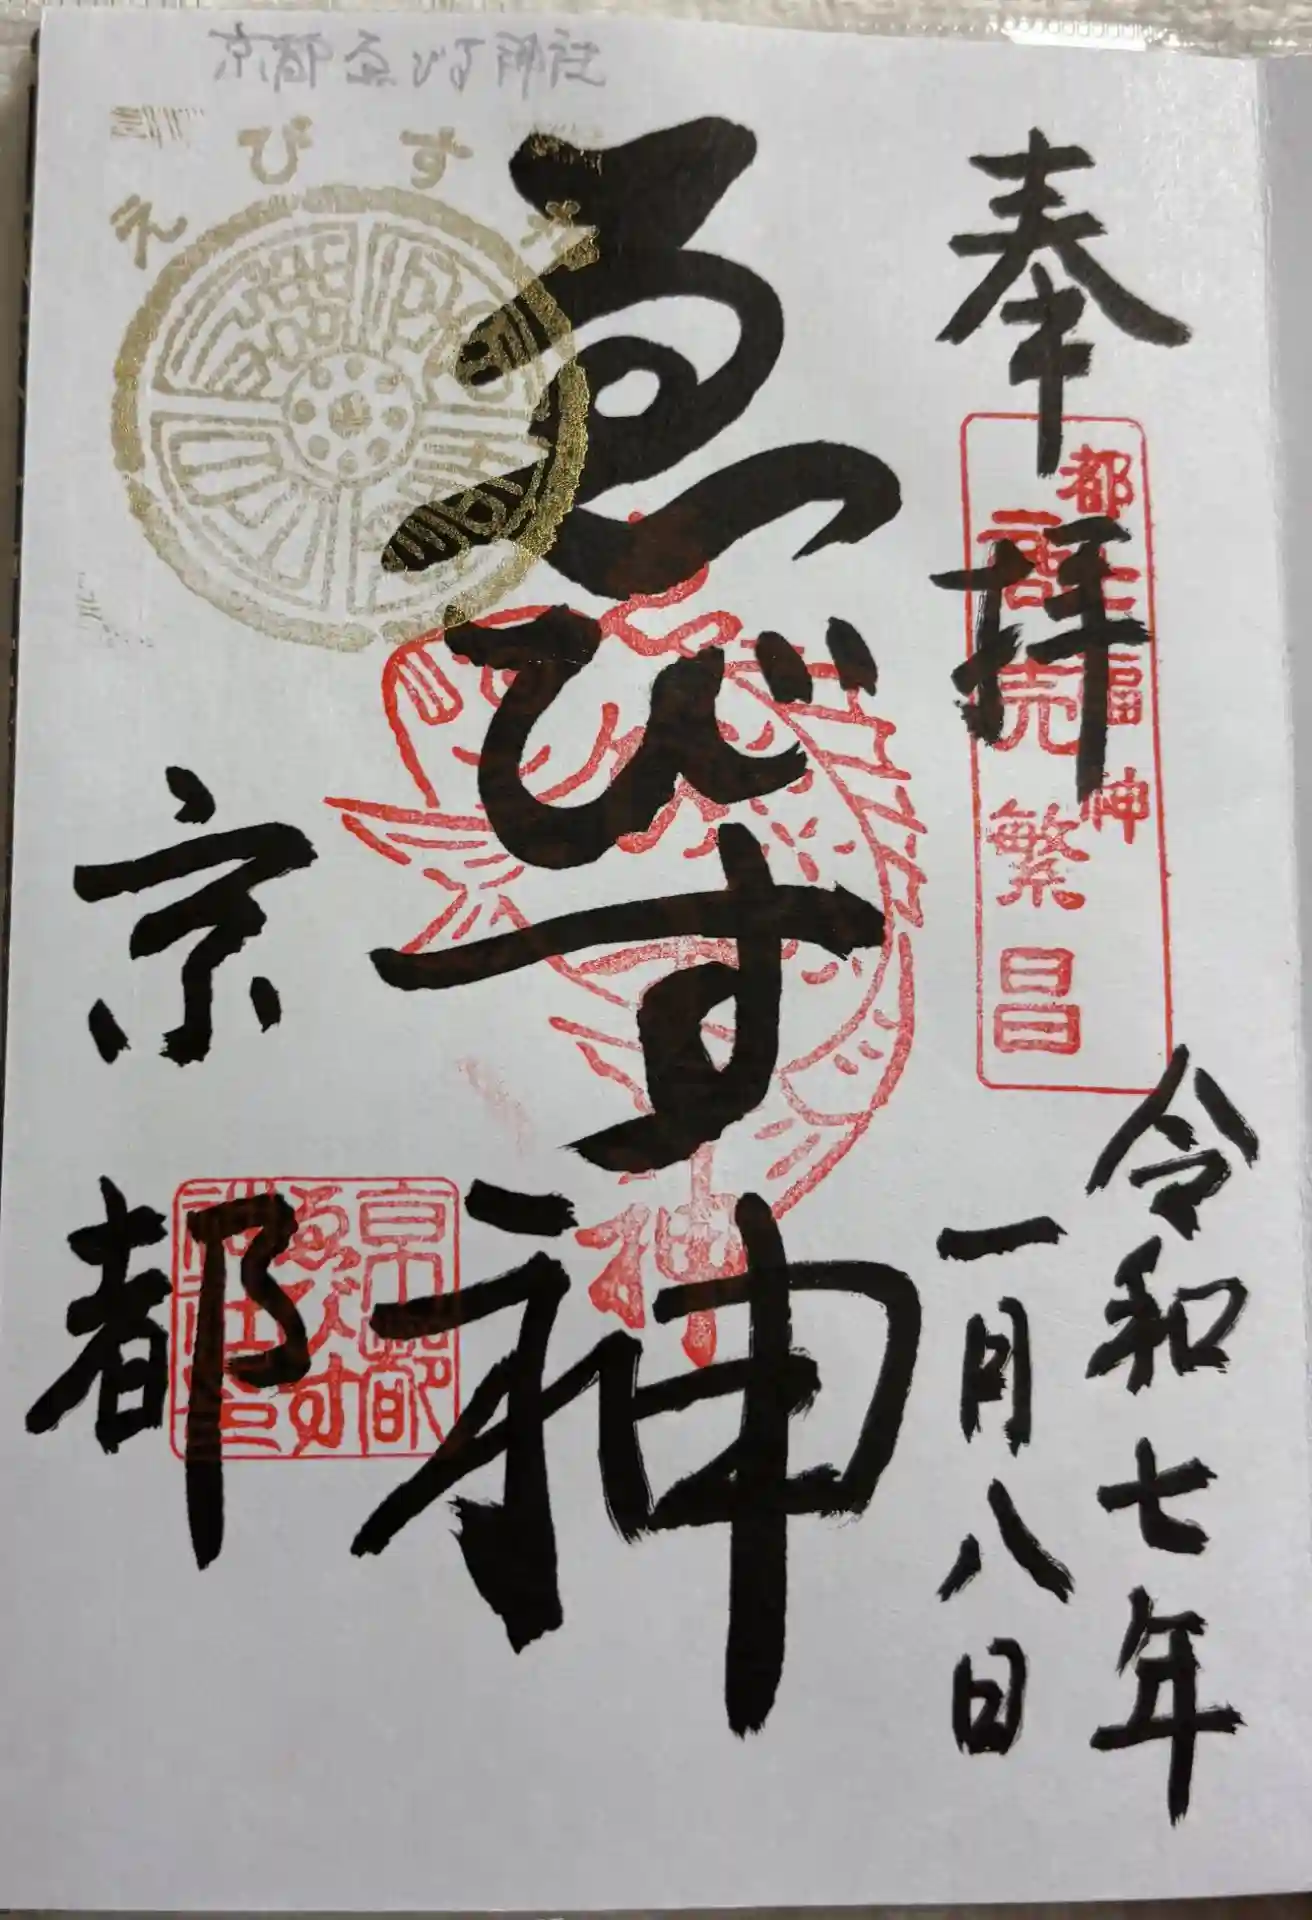 奉拝
都 七福神
商売繁昌
令和七年
一月八日
ゑびす神
京都
えびす
京都
ゑびす
神社
神